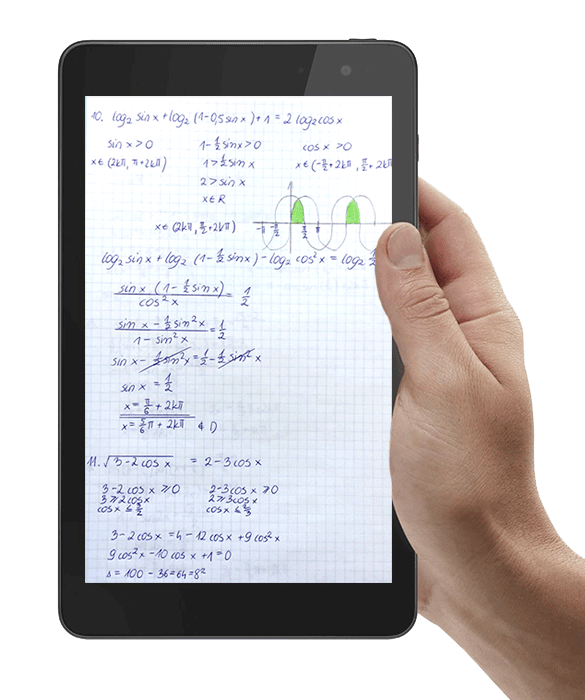 10. log₂ sin x + log₂ (1-0,5 sin x) + 1 = 2 log₂ cos x
sin x > 0    1 - ½ sin x > 0    cos x > 0
x ∈ (2kπ, π+2kπ)    1 > ½ sin x    x ∈ (-π/2 + 2kπ, π/2 + 2kπ
2 > sin x
x ∈ R
x ∈ (2kπ, π/2 + 2kπ)    -π  -π/2  π/2  π
log₂ sin x + log₂ (1 - ½ sin x) - log₂ cos² x = log₂ ½
sin x (1 - ½ sin x) / cos² x = 1/2
sin x - ½ sin² x / 1 - sin² x = 1/2
sin x - ½ sin² x = ½ - ½ sin² x
sin x = 1/2
x = π/6 + 2kπ
x = 5/6 π + 2kπ    ∉ D
11. √(3 - 2 cos x) = 2 - 3 cos x
3 - 2 cos x ≥ 0    2 - 3 cos x ≥ 0
3 ≥ 2 cos x    2 ≥ 3 cos x
cos x ≤ 3/2    cos x ≤ 2/3
3 - 2 cos x = 4 - 12 cos x + 9 cos² x
9 cos² x - 10 cos x + 1 = 0
Δ = 100 - 36 = 64 = 8²